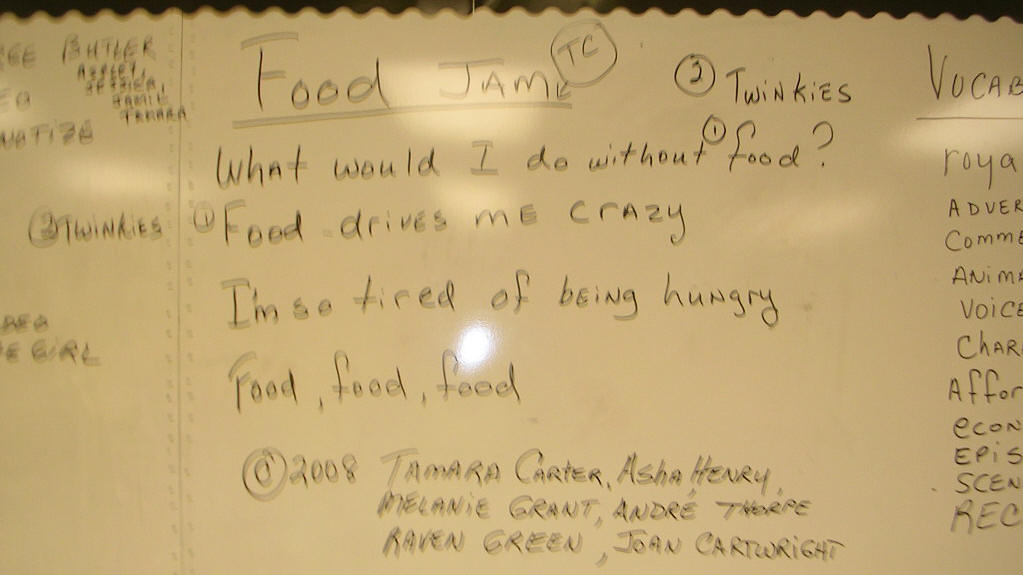 BUTLER
ASHLEY,
JESSICA,
JAMIE
TAMARA
② TWINKIES
GIRL
Food JAM
TC
② TWINKIES
What would I do without ① food?
① Food drives ME CRAZY
I'm so tired of being hungry
Food, food, food
© 2008 TAMARA CARTER, ASHA HENRY,
MELANIE GRANT, ANDRÉ THORPE
RAVEN GREEN, JOAN CARTWRIGHT
VOCAB
roya
ADVER
COMME
ANIMA
VOICE
CHARA
Affor
econ
EPIS
SCEN
REC